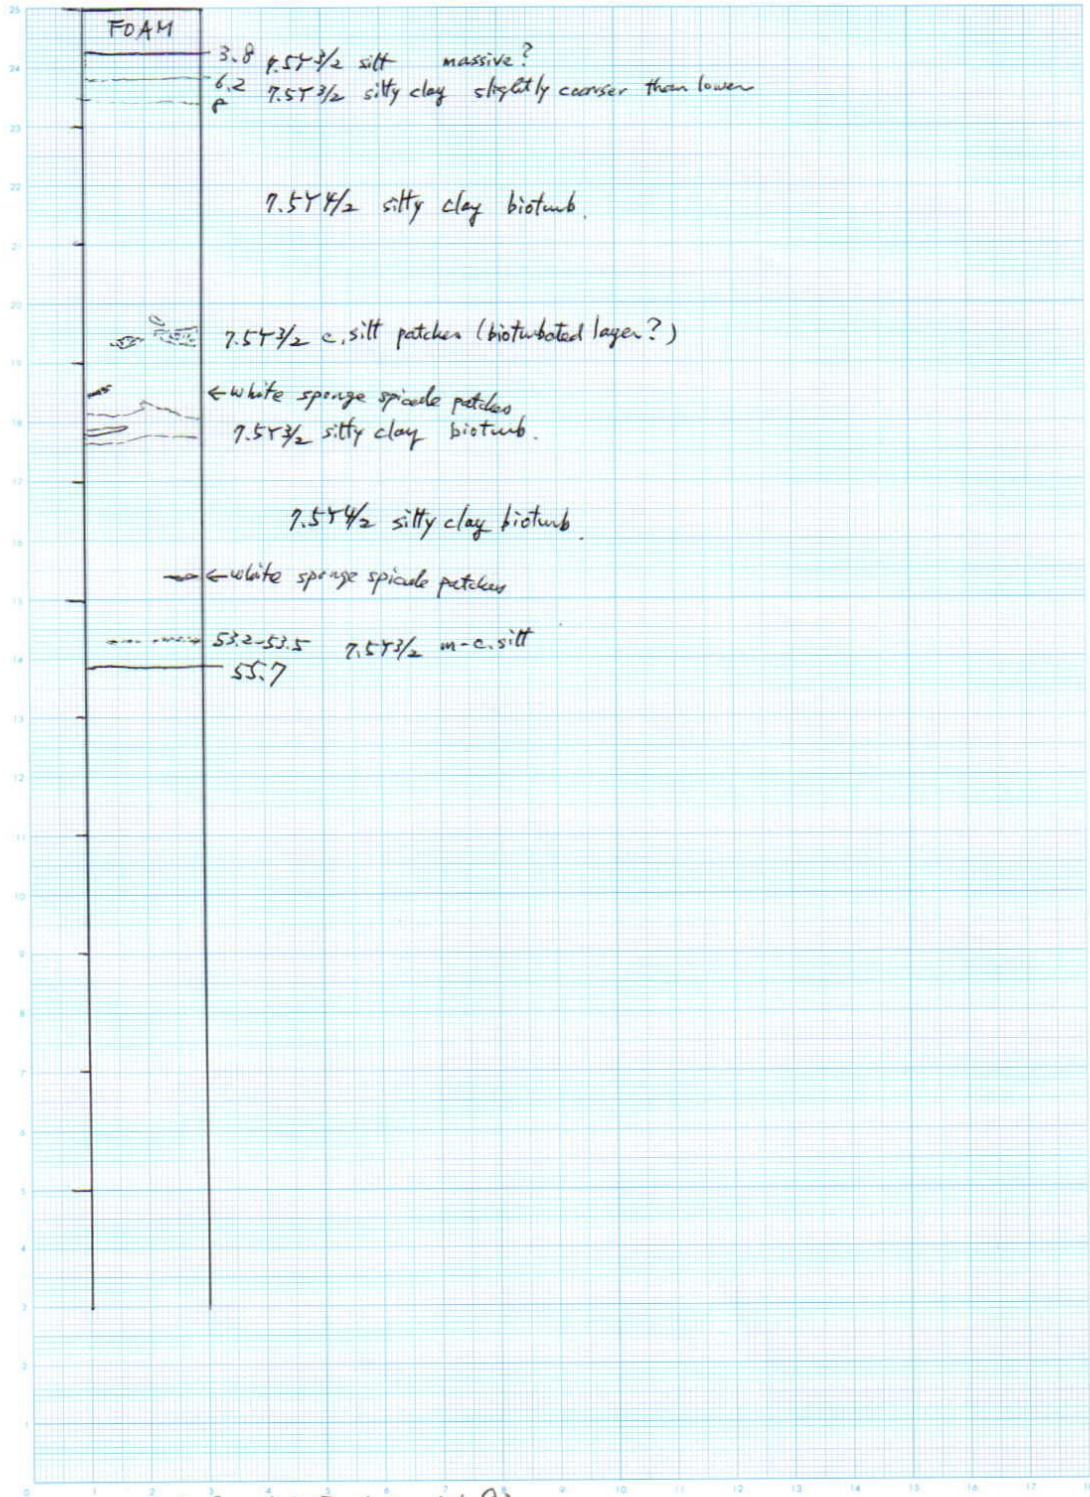 FOAM
3.8 7.5Y 3/2 silt massive?
6.2 7.5Y 3/2 silty clay slightly coarser than lower
8
7.5Y 4/2 silty clay bioturb.
7.5Y 3/2 c. silt patches (bioturbated layer?)
← white sponge spicule patches
7.5Y 3/2 silty clay bioturb.
7.5Y 4/2 silty clay bioturb.
← white sponge spicule patches
53.2-53.5 7.5Y 3/2 m-c. silt
55.7
25
24
23
22
21
20
19
18
17
16
15
14
13
12
11
10
9
8
7
6
5
4
3
2
1
0 1 2 3 4 5 6 7 8 9 10 11 12 13 14 15 16 17